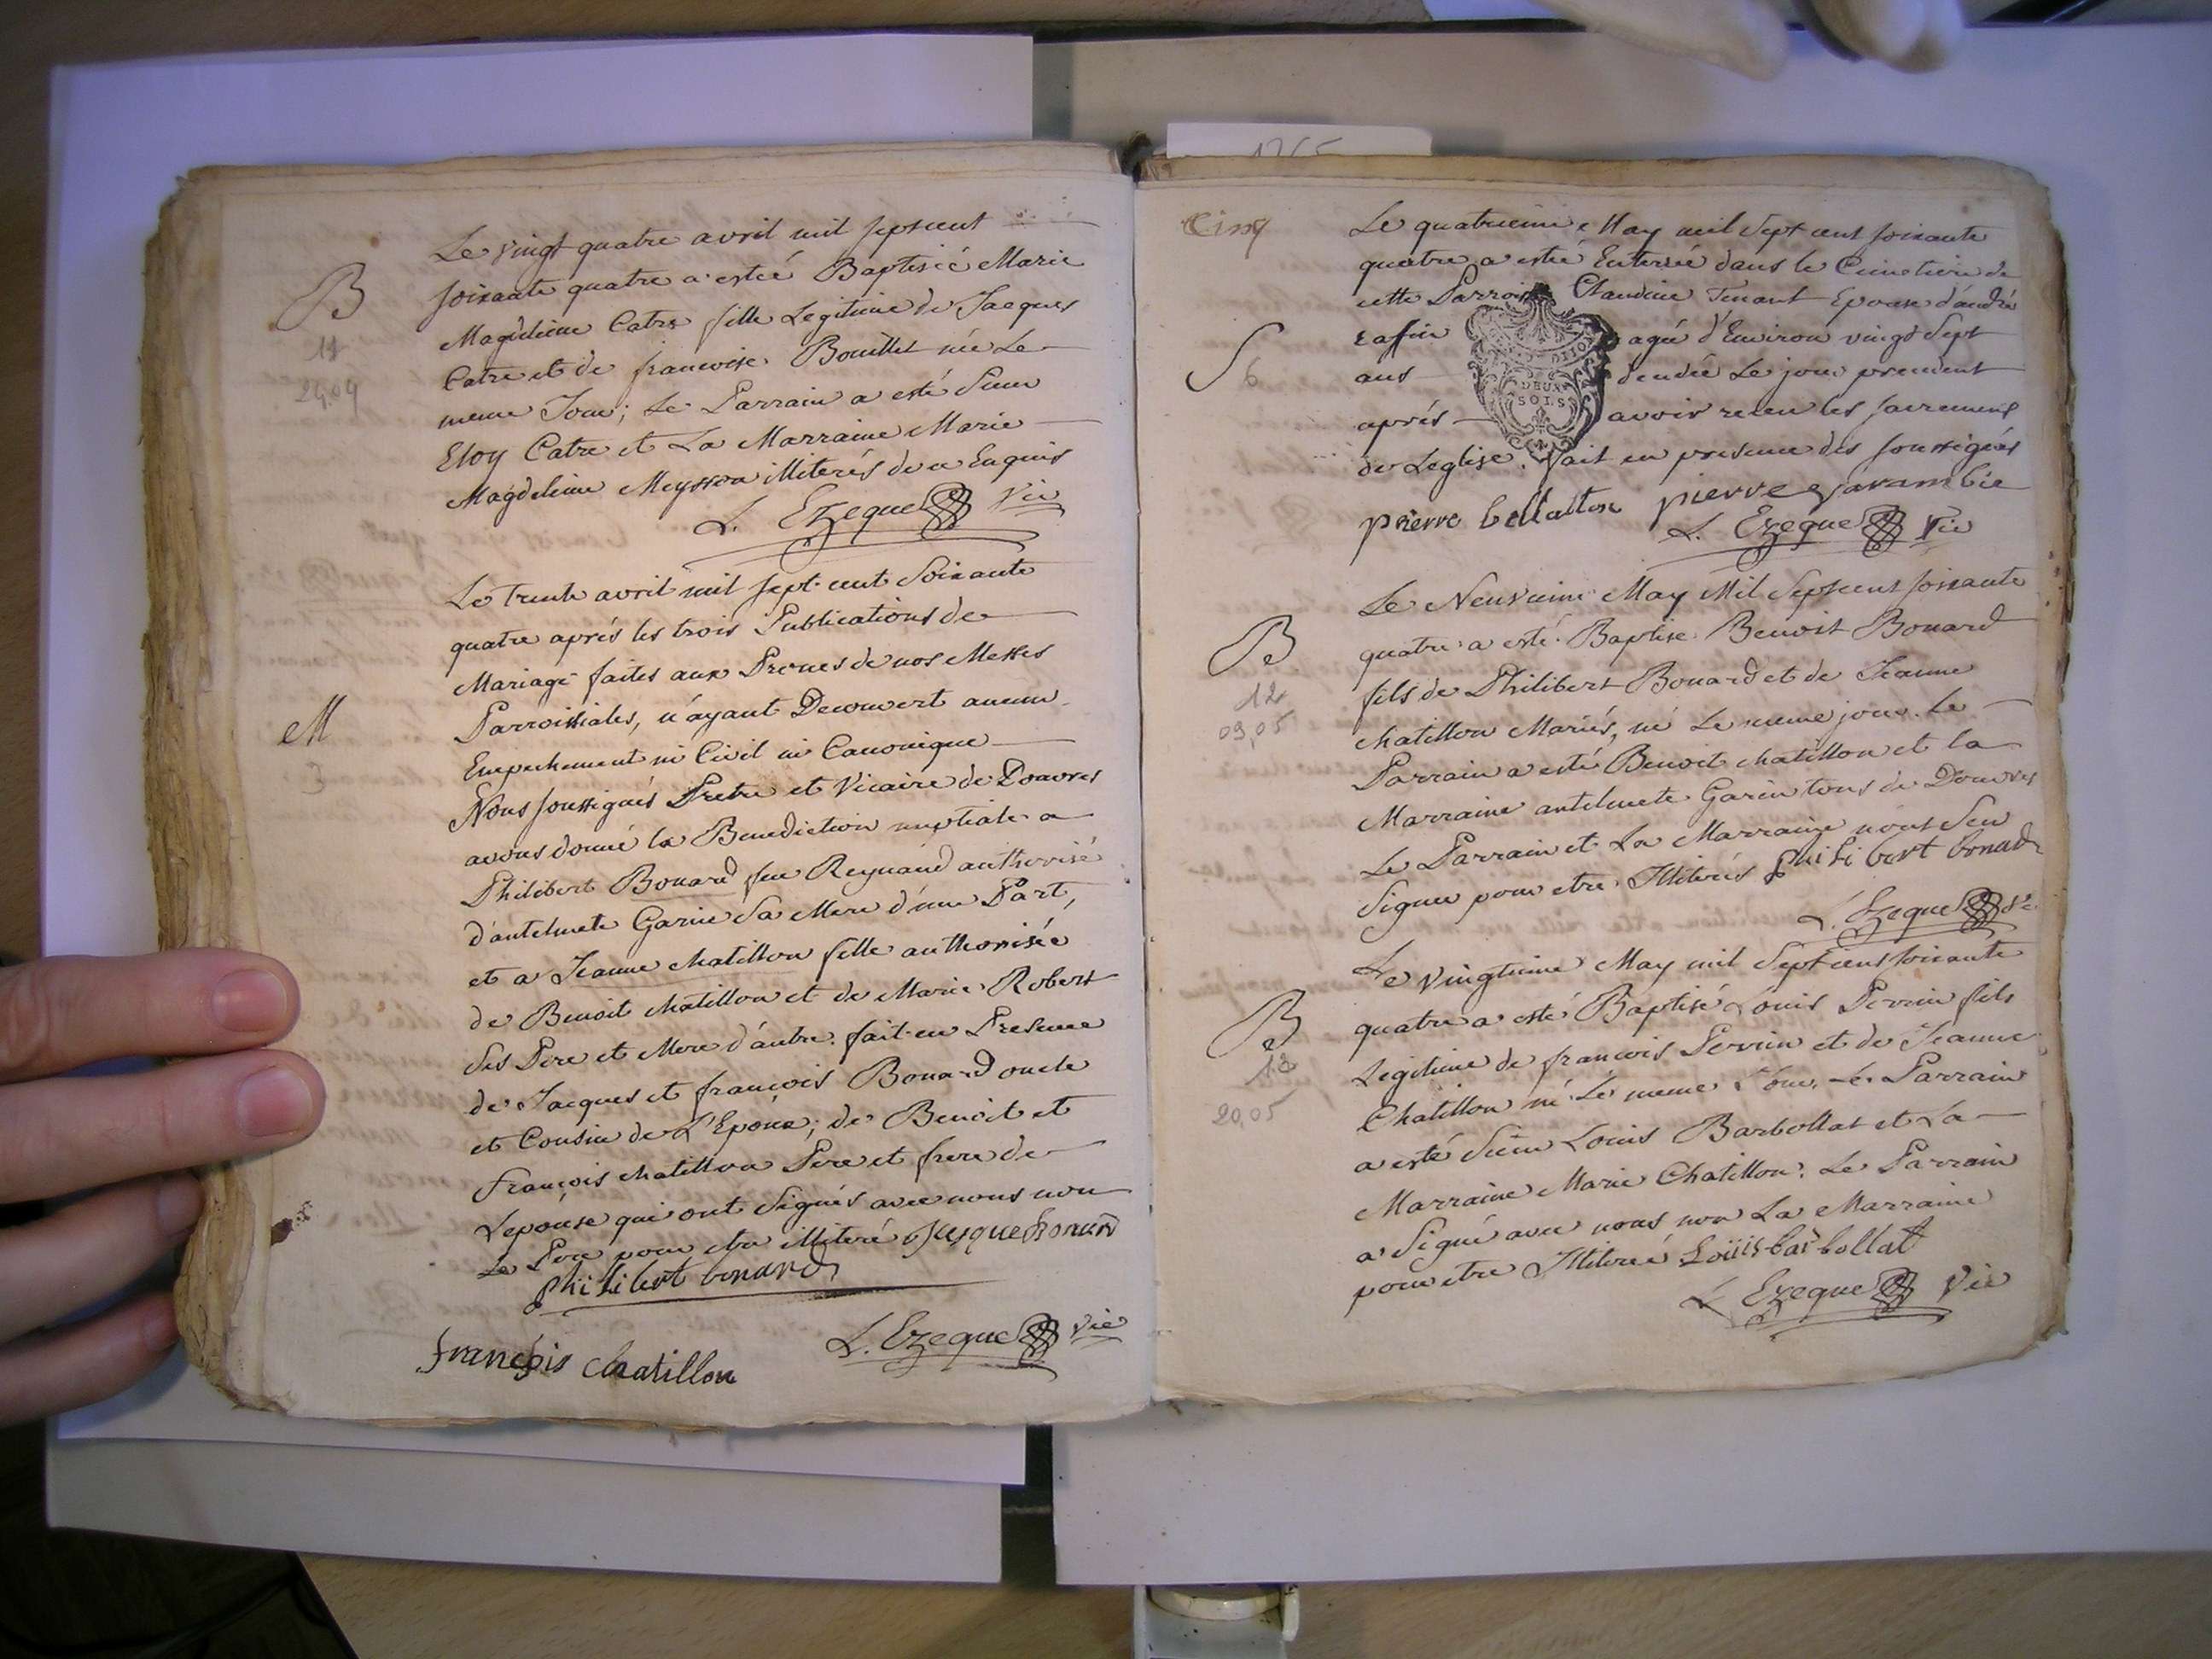 Le vingt quatre avril mil septcent
B
soixante quatre a estéé Baptisée Marie
Magdeleine Catre fille Legitime de Jacques
11
Catre et de francoise Bouillet née Le
24,04
meme Jour; Le Parrain a esté Sieur
Eloy Catre et La Marraine Marie
Magdeleine Meysson illiterés de ce Enquis
L. Ezeque Vic
Le Trente avril mil sept cent Soixante
quatre aprés les trois Publications de
Mariage faites aux Prones de nos Messes
M
Parroissiales, n'ayant Decouvert aucun
3
Empechement ni Civil ni Canonique
Nous soussignés Pretre et Vicaire de Douvres
avons donné la Benediction nuptiale a
Philibert Bonard feu Reynaud authorisé
d'antelmete Garin Sa Mere d'une Part,
et a Jeanne chatillon fille authorisée
de Benoit chatillon et de Marie Robert
Ses Pere et Mere d'autre. fait en Presence
de Jacques et francois Bonard oncle
et Cousin de L'Epoux; de Benoit et
François chatillon Pere et frere de
Lepouse qui ont Signés avec nous non
Le Pere pour etre illiteré Jacque Bonard
philibert bonard
L. Ezeque Vic
françois chatillon
1765
Cinq
Le quatrieme May mil Sept cent soixante
quatre a estéé Enterrée dans le Cimetiere de
cette Parroisse Claudine Tenant Epouse d'andré
S
6
raffin agée d'Environ vingt Sept
ans decedée Le jour precedent
DEUX
SOLS
aprés avoir receu les sacrements
de Leglise. fait en presence des soussignés
pierre bellatton pierre garambie
L. Ezeque Vic
Le Neuvieme May Mil Septcent soixante
B
quatre a esté Baptise Benoit Bonard
12
fils de Philibert Bonard et de Jeanne
09,05
chatillon Mariés, né Le meme jour. Le
Parrain a esté Benoit chatillon et la
Marraine antelmete Garin tous de Douvres
Le Parrain et La Marraine nont Seu
Signer pour etre Illiterés philibert bonard
L. Ezeque Vc
Le vingtieme May mil Septcent soixante
B
quatre a esté Baptisé Louis Perrin fils
13
Legitime de francois Perrin et de Jeanne
20,05
Chatillon né Le meme Jour. Le Parrain
a esté Sieur Louis Barbollat et La
Marraine Marie Chatillon: Le Parrain
a Signé avec nous non La Marraine
pour etre Illiterée Loüis barbollat
L. Ezeque Vic